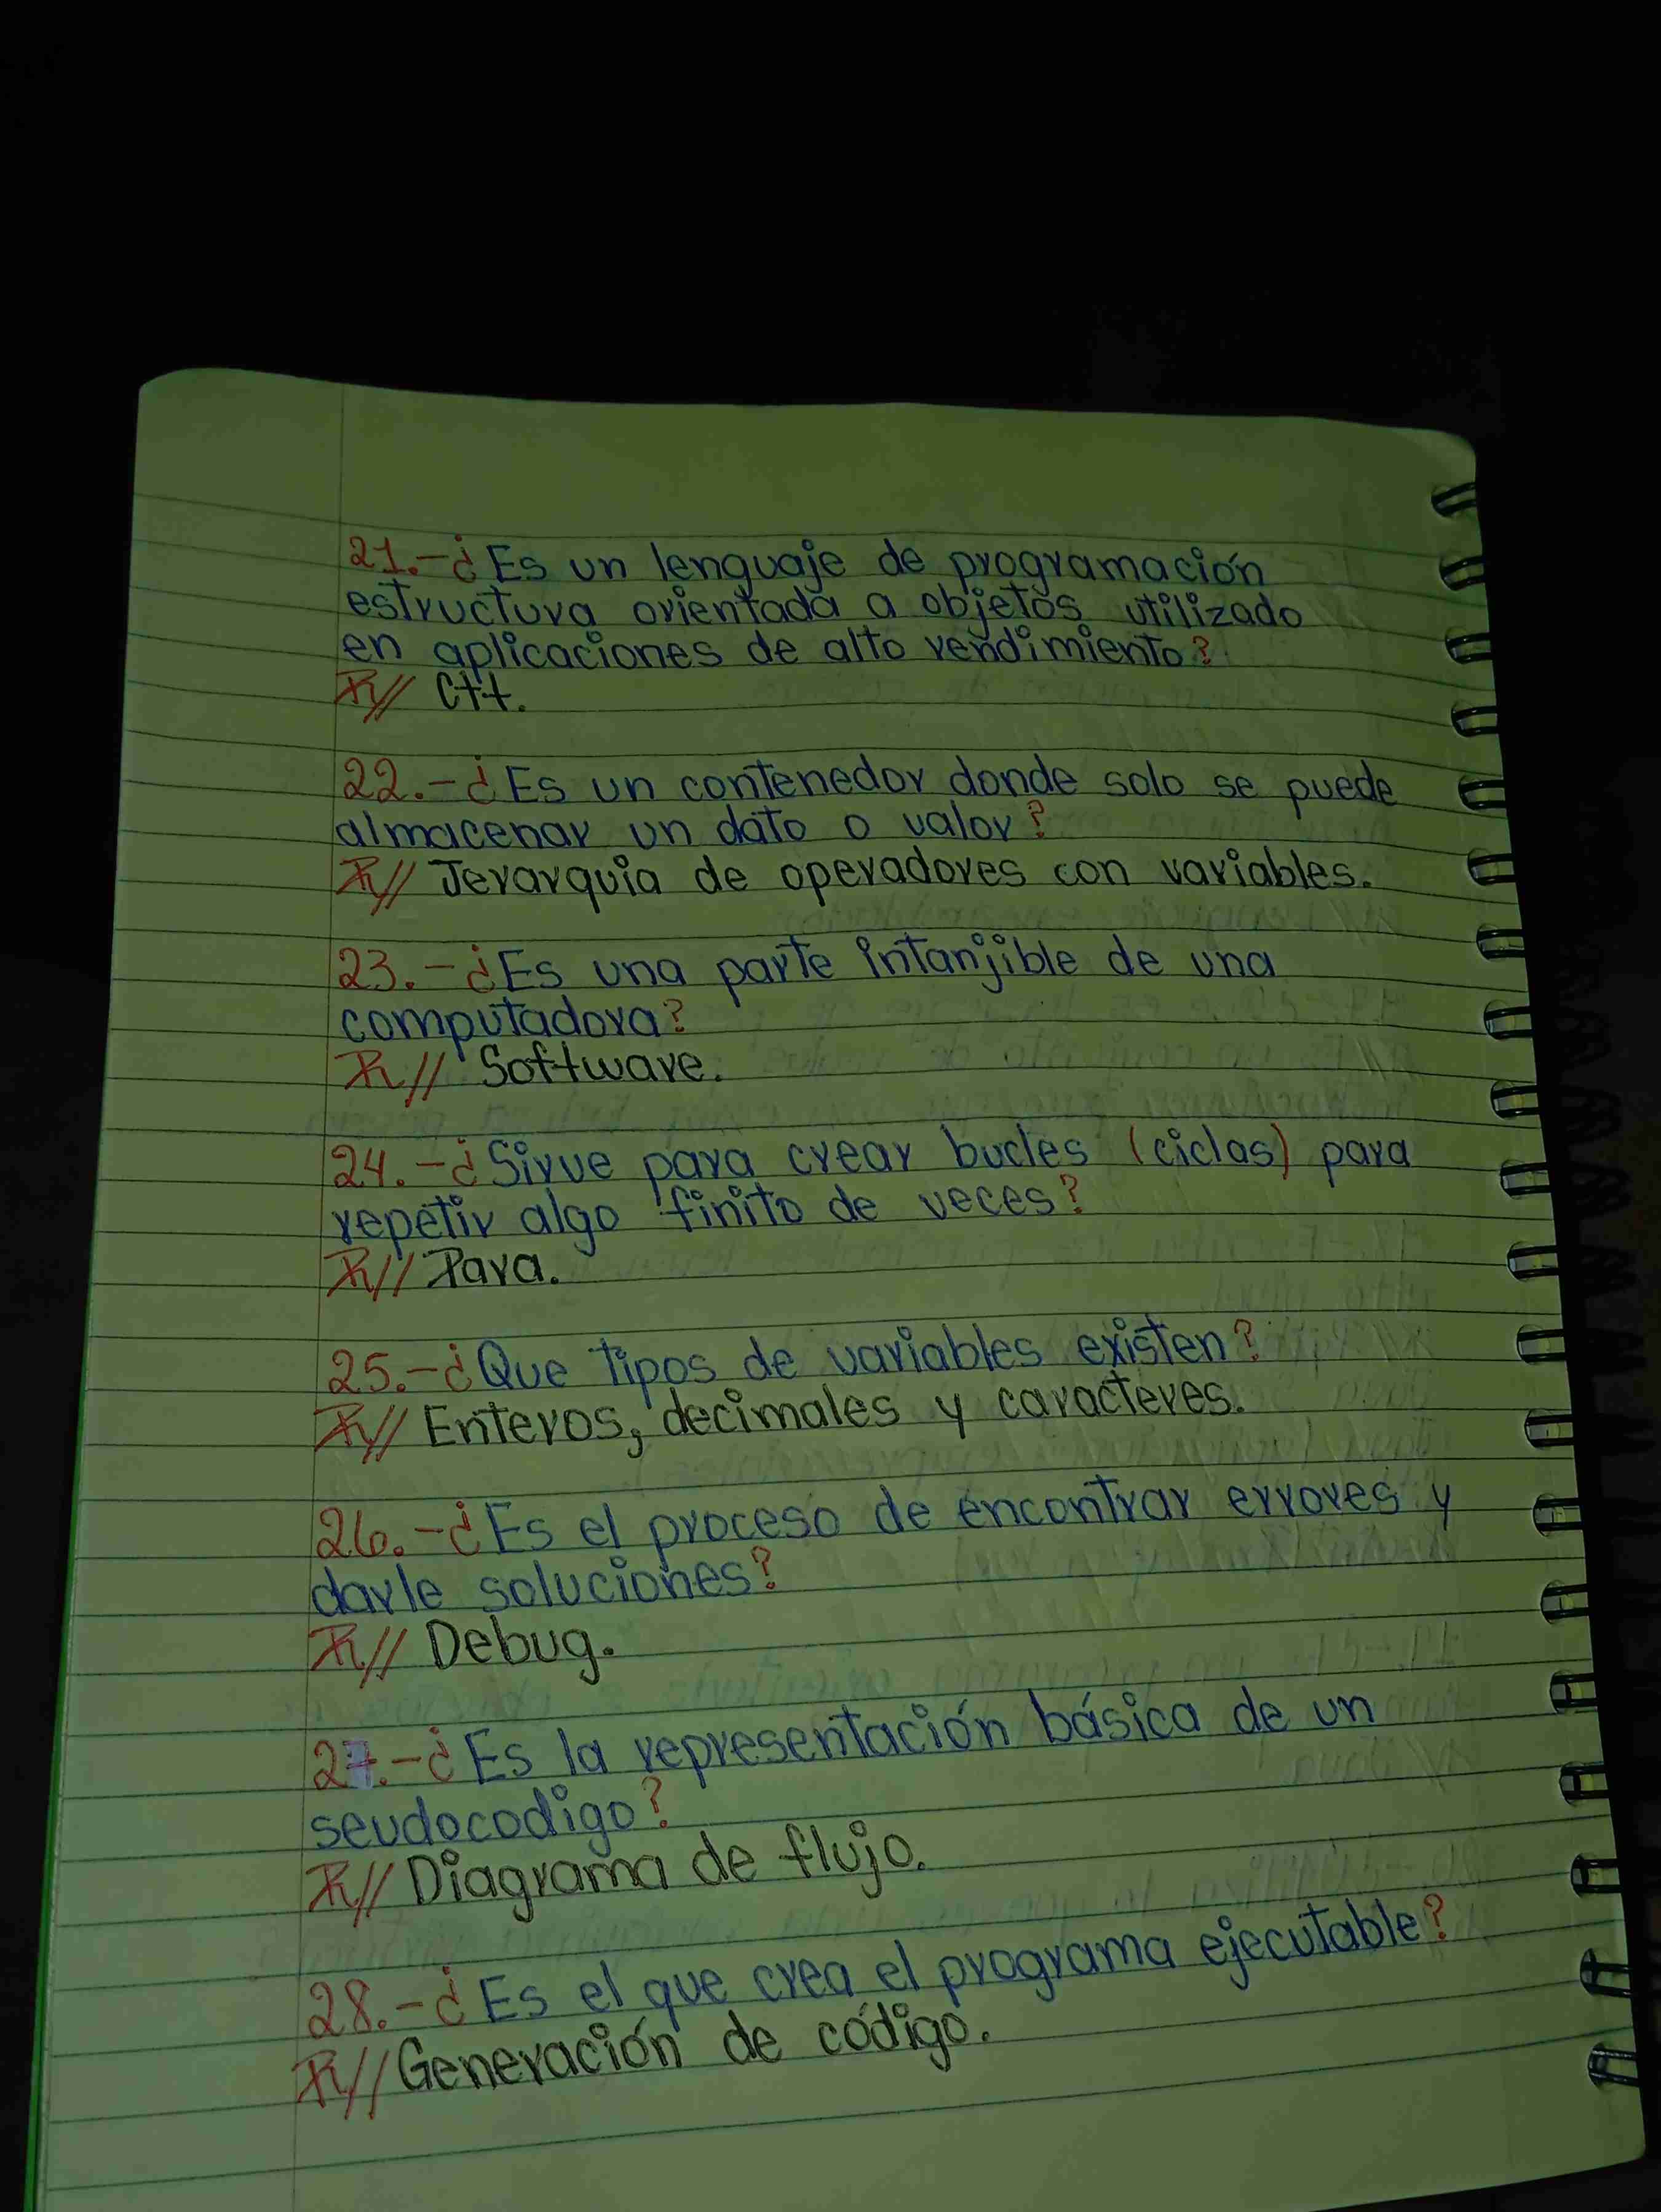 21.-¿Es un lenguaje de programación
estructura orientada a objetos utilizado
en aplicaciones de alto rendimiento?
R// C++.
22.-¿Es un contenedor donde solo se puede
almacenar un dato o valor?
R// Jerarquia de operadores con variables.
23.-¿Es una parte intanjible de una
computadora?
R// Software.
24.-¿Sirve para crear bucles (ciclos) para
repetir algo finito de veces?
R// Para.
25.-¿Que tipos de variables existen?
R// Enteros, decimales y caracteres.
26.-¿Es el proceso de encontrar errores y
darle soluciones?
R// Debug.
27.-¿Es la representación básica de un
seudocodigo?
R// Diagrama de flujo.
28.-¿Es el que crea el programa ejecutable?
R// Generación de código.